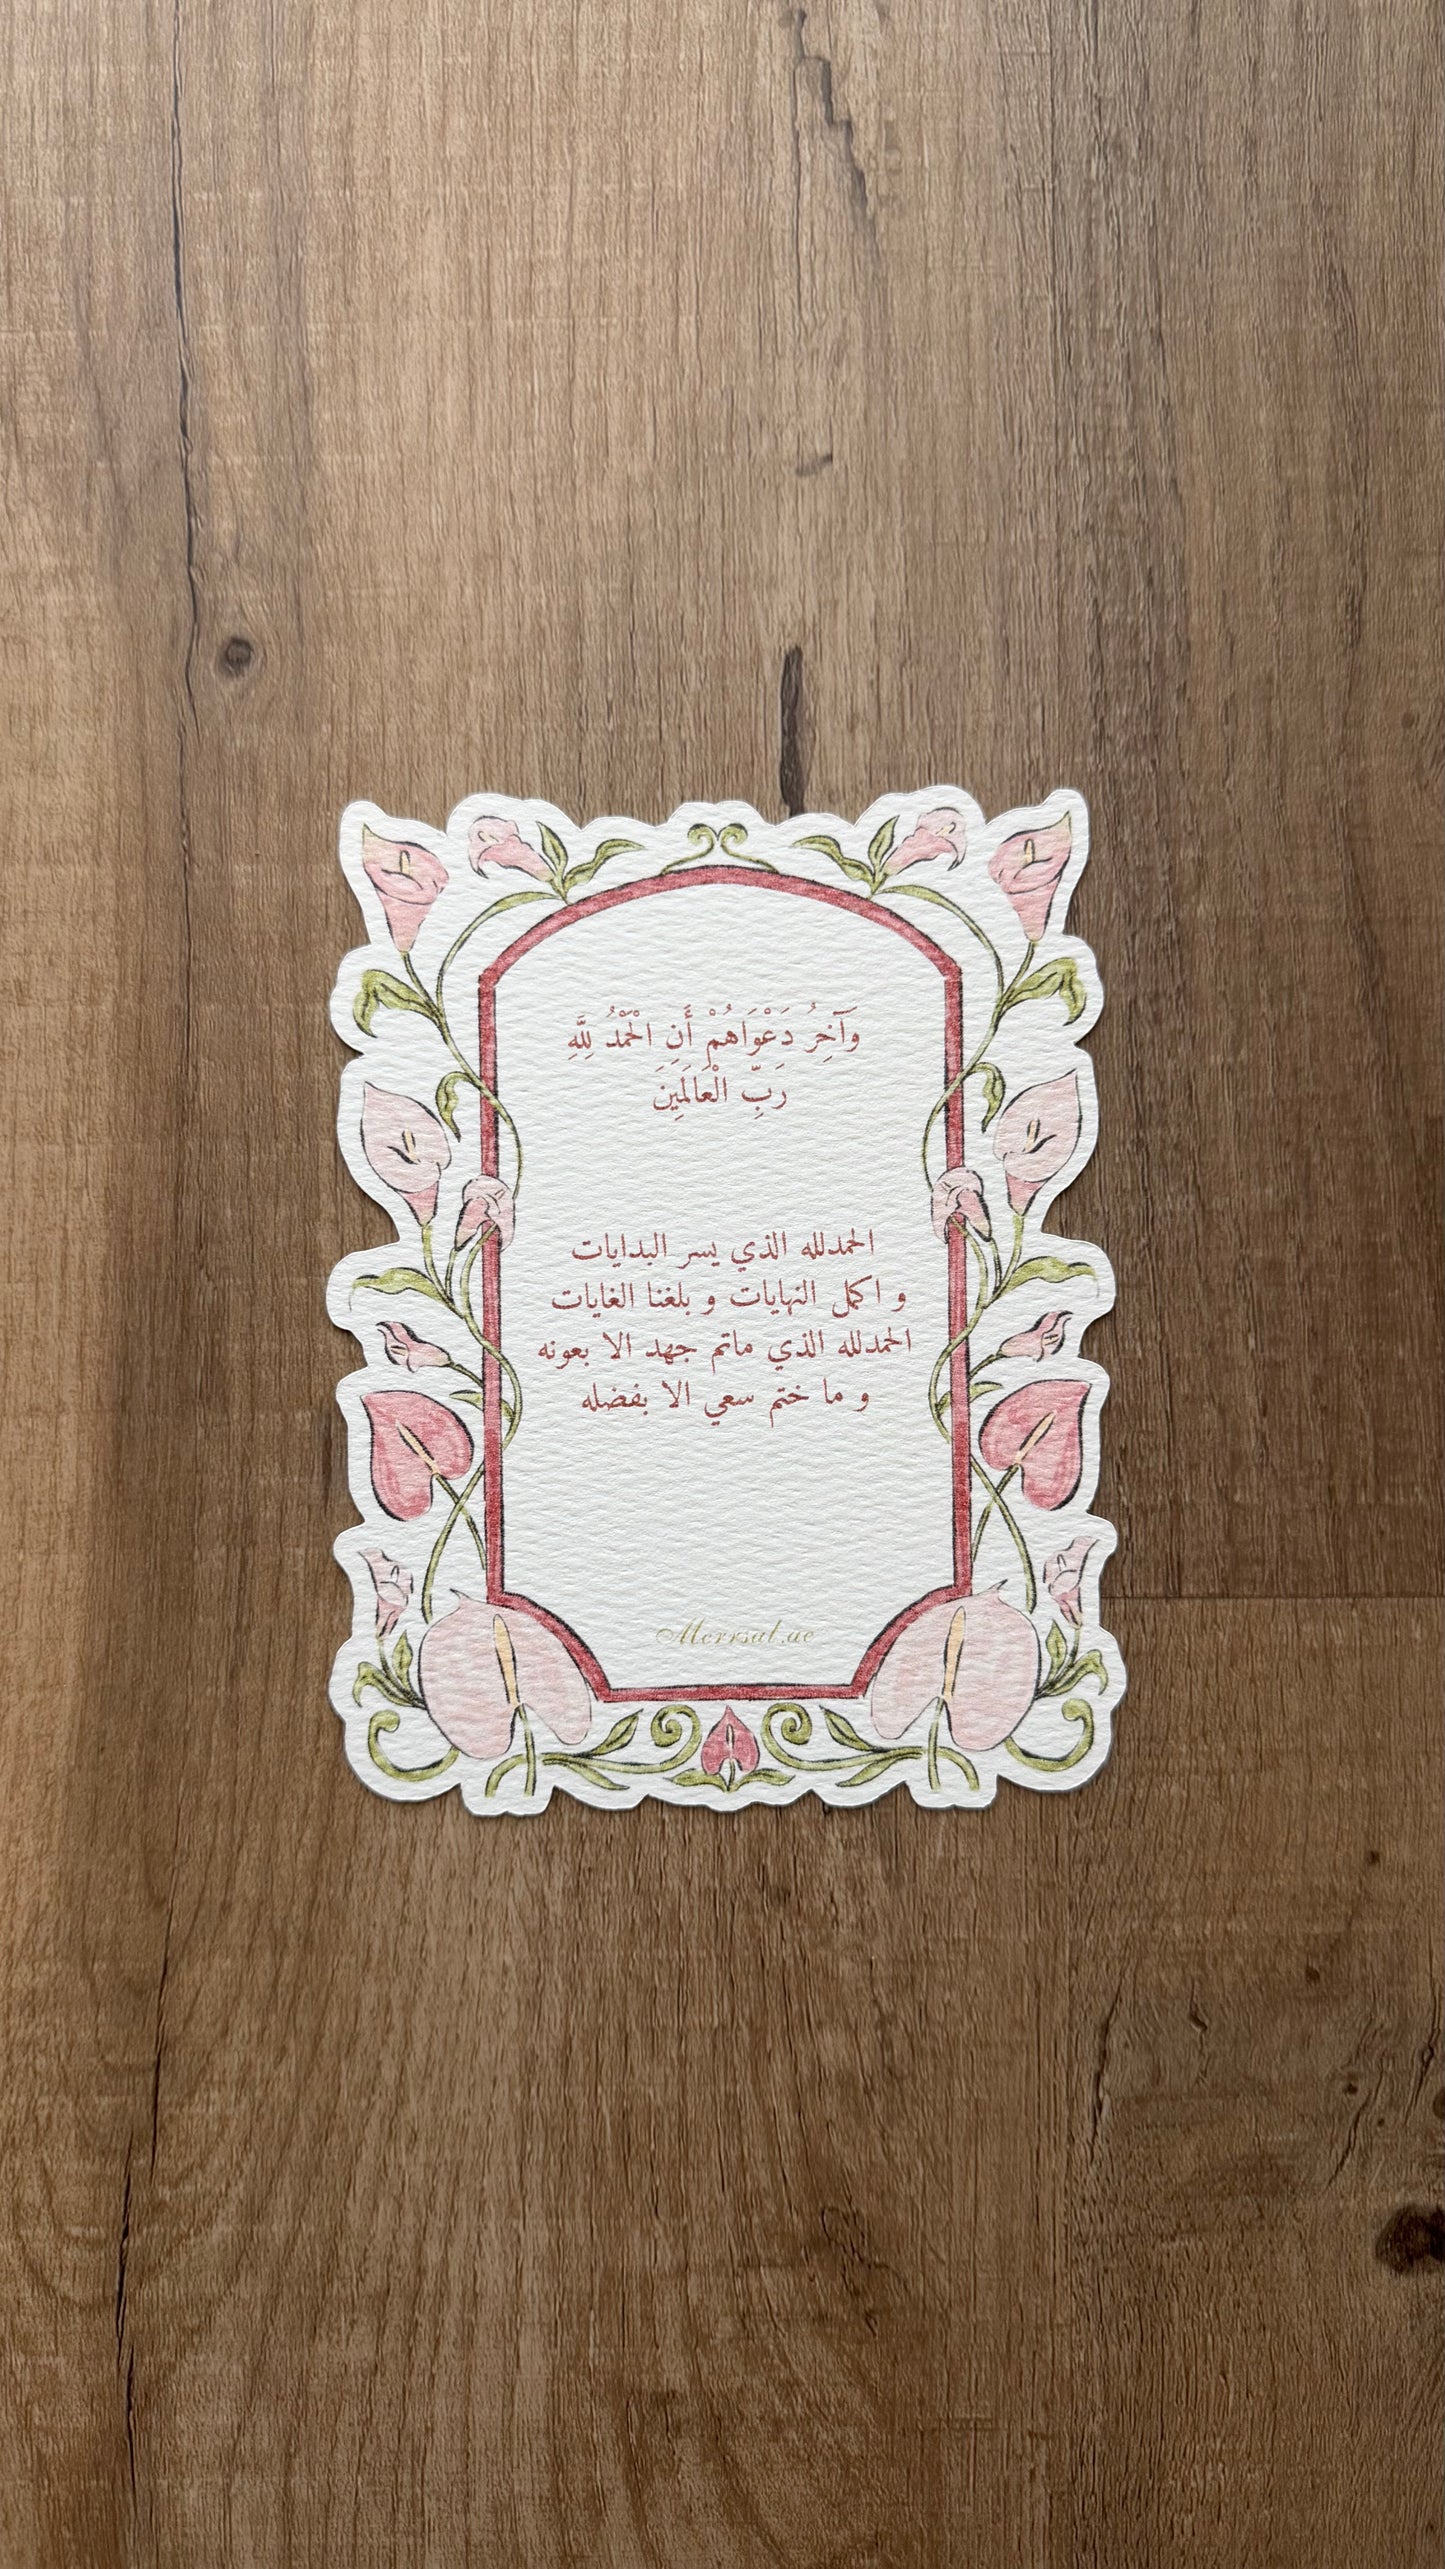 وَآخِرُ دَعْوَاهُمْ أَنِ الْحَمْدُ لِلَّهِ
رَبِّ الْعَالَمِينَ
الحمدلله الذي يسر البدايات
و اكمل النهايات و بلغنا الغايات
الحمدلله الذي ماتم جهد الا بعونه
و ما ختم سعي الا بفضله
Merrsal.ae